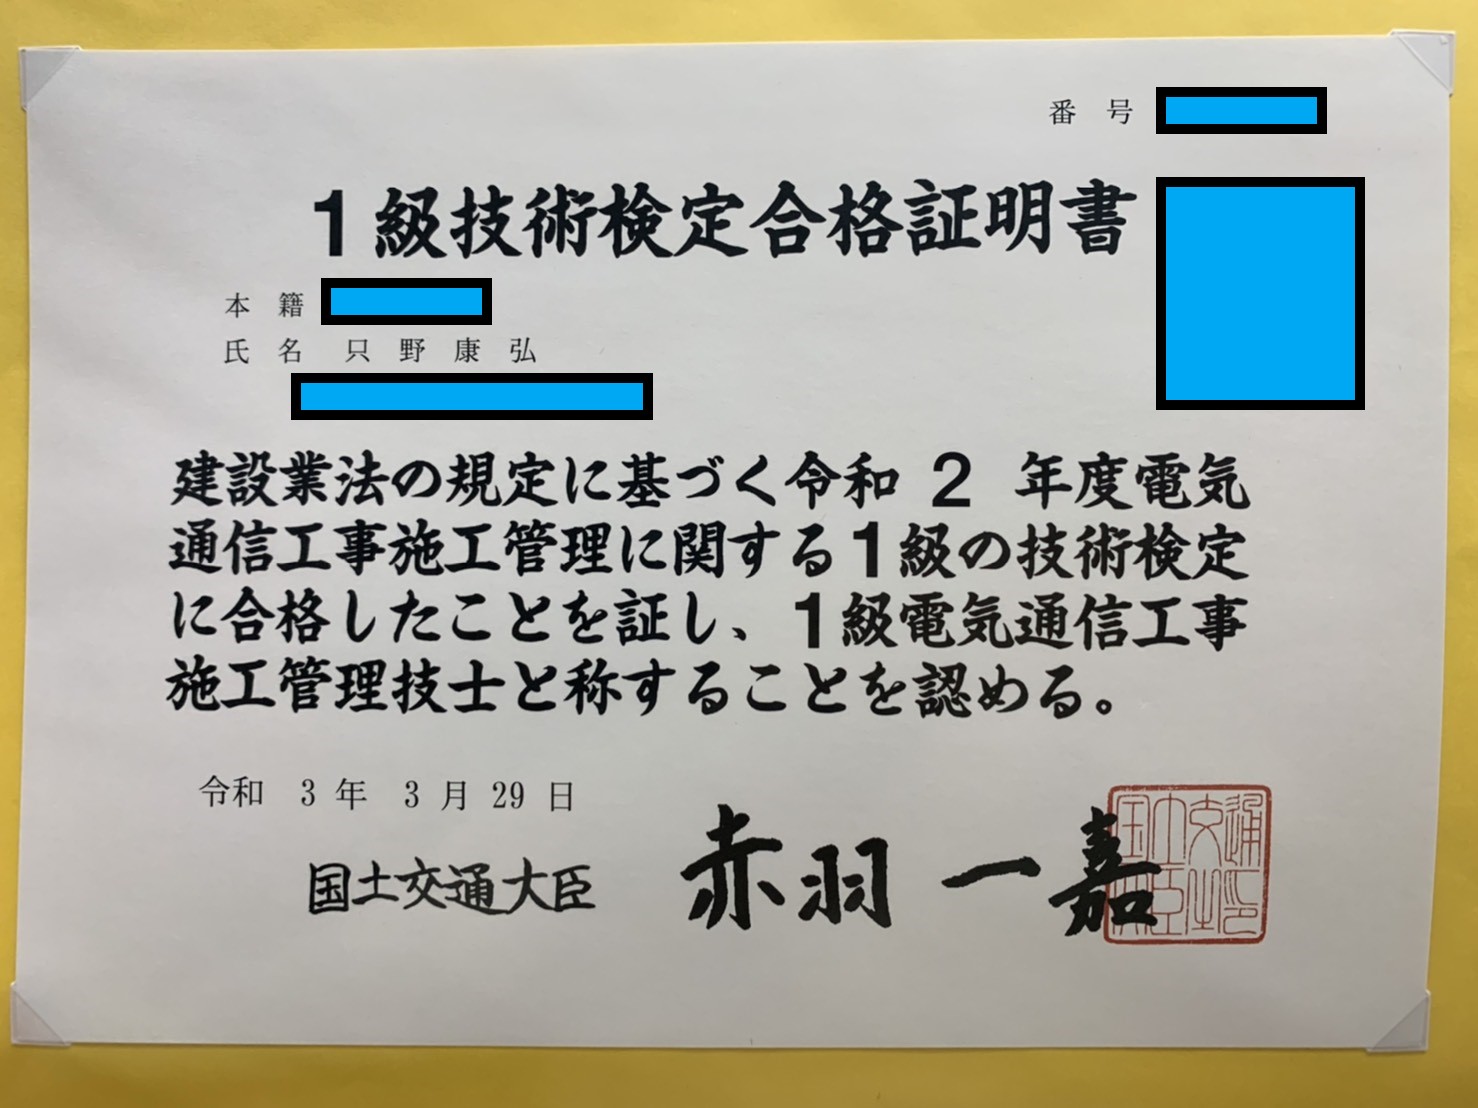 番号
1級技術検定合格証明書
本籍
氏名 只野康弘
建設業法の規定に基づく令和 2 年度電気
通信工事施工管理に関する1級の技術検定
に合格したことを証し、1級電気通信工事
施工管理技士と称することを認める。
令和 3 年 3 月 29 日
国土交通大臣 赤羽一嘉